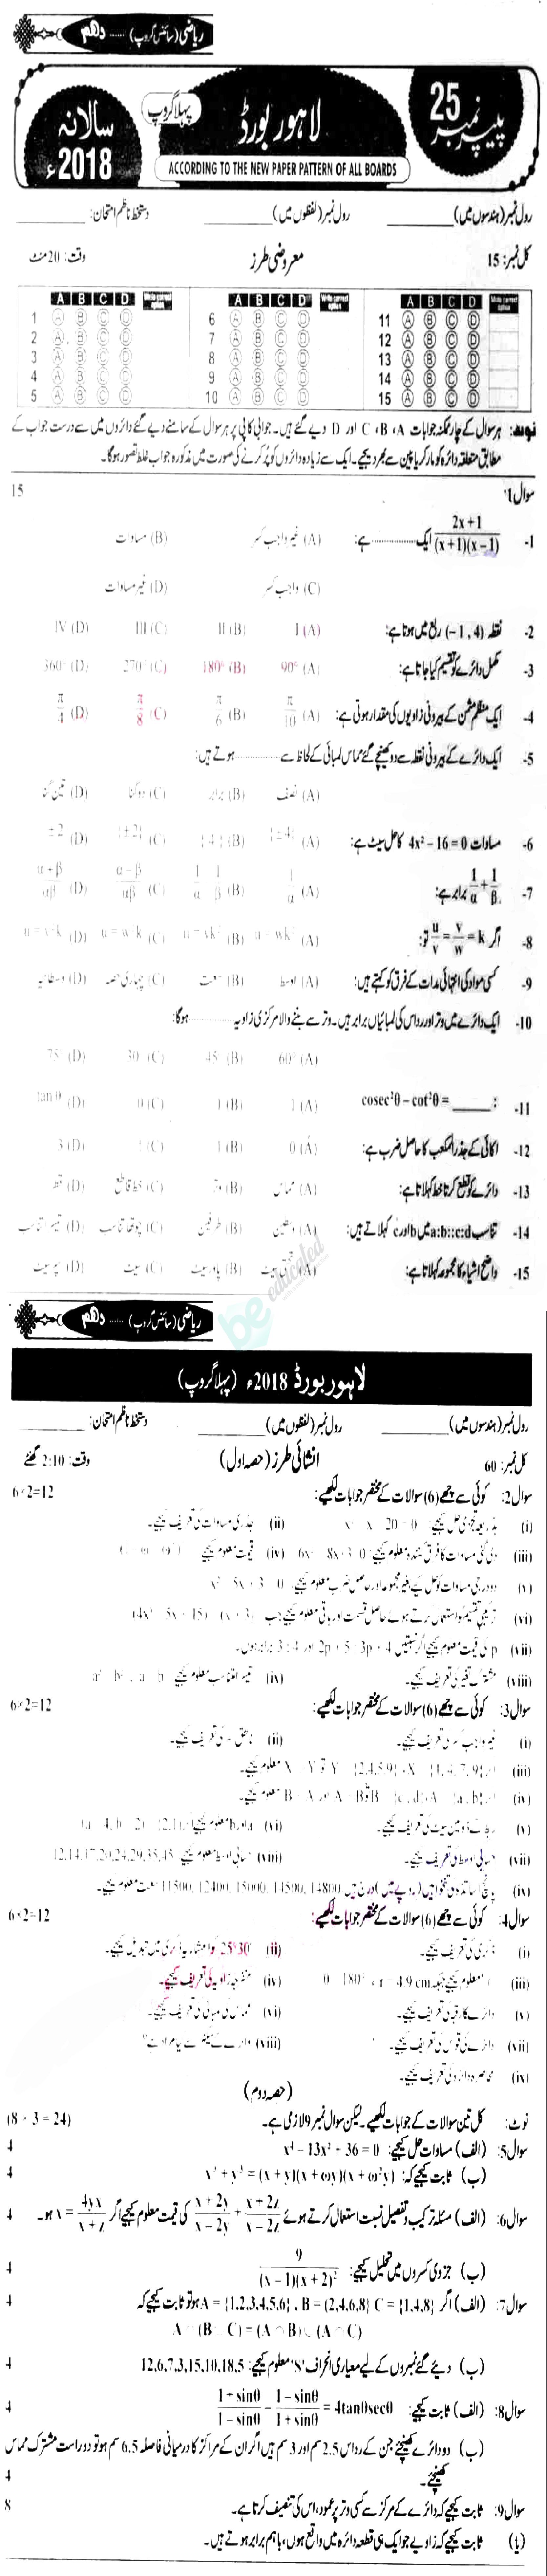 ریاضی (سائنس گروپ) ...... دہم
پیپر نمبر 25
لاہور بورڈ
پہلا گروپ
سالانہ 2018ء
ACCORDING TO THE NEW PAPER PATTERN OF ALL BOARDS
رول نمبر (ہندسوں میں) ________ رول نمبر (لفظوں میں) ________ دستخط ناظم امتحان: ________
کل نمبر: 15 معروضی طرز وقت: 20 منٹ
A B C D Write correct option A B C D Write correct option A B C D Write correct option
1 A B C D 6 A B C D 11 A B C D
2 A B C D 7 A B C D 12 A B C D
3 A B C D 8 A B C D 13 A B C D
4 A B C D 9 A B C D 14 A B C D
5 A B C D 10 A B C D 15 A B C D
نوٹ: ہر سوال کے چار ممکنہ جوابات A، B، C اور D دیے گئے ہیں۔ جوابی کاپی پر ہر سوال کے سامنے دیے گئے دائروں میں سے درست جواب کے
مطابق متعلقہ دائرہ کو مارکر یا پین سے بھر دیجیے۔ ایک سے زیادہ دائروں کو پُر کرنے کی صورت میں مذکورہ جواب غلط تصور ہوگا۔
سوال 1: 15
-1 (2x+1)/((x+1)(x-1)) ایک ............ ہے: (A) غیر واجب کسر (B) مساوات
(C) واجب کسر (D) غیر مساوات
-2 نقطہ (-1, 4) ربع میں ہوتا ہے: (A) I (B) II (C) III (D) IV
-3 مکمل دائرے کو تقسیم کیا جاتا ہے: (A) 90° (B) 180° (C) 270° (D) 360°
-4 ایک منظم مثمن کے بیرونی زاویوں کی مقدار ہوتی ہے: (A) π/10 (B) π/6 (C) π/8 (D) π/4
-5 ایک دائرے کے بیرونی نقطہ سے دو کھینچے گئے مماس لمبائی کے لحاظ سے ............ ہوتے ہیں:
(A) نصف (B) برابر (C) دوگنا (D) تین گنا
-6 مساوات 4x² – 16 = 0 کا حل سیٹ ہے: (A) {±4} (B) {4} (C) {±2} (D) ±2
-7 1/α + 1/β برابر ہے: (A) 1/α (B) 1/α 1/β (C) (α–β)/αβ (D) (α+β)/αβ
-8 اگر u/v = v/w = k تو: (A) u = wk² (B) u = vk² (C) u = w²k (D) u = v²k
-9 کسی مواد کی انتہائی مدات کے فرق کو کہتے ہیں: (A) اوسط (B) سعت (C) چہاری حصہ (D) وسطانیہ
-10 ایک دائرے میں وتر اور رداس کی لمبائیاں برابر ہیں۔ وتر سے بننے والا مرکزی زاویہ ............ ہوگا:
(A) 60° (B) 45° (C) 30° (D) 75°
-11 cosec²θ – cot²θ = ______ : (A) 1 (B) 1 (C) 0 (D) tanθ
-12 اکائی کے جذر المکعب کا حاصل ضرب ہے: (A) 0 (B) 1 (C) 1 (D) 3
-13 دائرے کو قطع کرتا خط کہلاتا ہے: (A) مماس (B) وتر (C) خط قاطع (D) قطر
-14 تناسب a:b::c:d میں b اور c کہلاتے ہیں: (A) وسطین (B) طرفین (C) چوتھا تناسب (D) تیسرا تناسب
-15 واضح اشیاء کا مجموعہ کہلاتا ہے: (A) تحتی سیٹ (B) پاور سیٹ (C) سیٹ (D) سپر سیٹ
be educated
ریاضی (سائنس گروپ) ...... دہم
لاہور بورڈ 2018ء (پہلا گروپ)
رول نمبر (ہندسوں میں) ________ رول نمبر (لفظوں میں) ________ دستخط ناظم امتحان: ________
کل نمبر: 60 انشائی طرز (حصہ اول) وقت: 2:10 گھنٹے
سوال 2: کوئی سے چھ (6) سوالات کے مختصر جوابات لکھیے: 6×2=12
(i) بذریعہ تجزی حل کیجیے: x² x 20 = 0 (ii) جذری مساوات کی تعریف کیجیے۔
(iii) دی گئی مساوات کا فرق کنندہ معلوم کیجیے: 6x² 8x+3 0 (iv) قیمت معلوم کیجیے
(v) دو درجی مساوات کو حل کیے بغیر مجموعہ اور حاصل ضرب معلوم کیجیے: x² 5x 3 0
(vi) ترکیبی تقسیم کو استعمال کرتے ہوئے حاصل قسمت اور باقی معلوم کیجیے جب (x+3) (4x³ 5x+15)
(vii) p کی قیمت معلوم کیجیے اگر نسبتیں 2p+5 : 3p+4 اور 3:4 برابر ہوں۔
(viii) مشترک تغیر کی تعریف کیجیے۔ (ix) تیسرا تناسب معلوم کیجیے a² b², a b
سوال 3: کوئی سے چھ (6) سوالات کے مختصر جوابات لکھیے: 6×2=12
(i) غیر واجب کسر کی تعریف کیجیے۔ (ii) ناطق کسر کی تعریف کیجیے۔
(iii) X {1,4,7,9} Y {2,4,5,9} تو X Y معلوم کیجیے۔
(iv) A {a,b} B {c,d} تو A B اور B A معلوم کیجیے۔
(v) ربط کے ڈومین سیٹ کی تعریف کیجیے۔ (vi) a اور b معلوم کیجیے اگر (a 4, b 2) (2,1)
(vii) حسابی اوسط کی تعریف کیجیے۔ (viii) حسابی اوسط معلوم کیجیے 12,14,17,20,24,29,35,45
(ix) پانچ اساتذہ کی تنخواہیں (روپے میں) درج ہیں 11500, 12400, 15000, 14500, 14800 سعت معلوم کیجیے۔
سوال 4: کوئی سے چھ (6) سوالات کے مختصر جوابات لکھیے: 6×2=12
(i) ڈگری کی تعریف کیجیے۔ (ii) 25°30' کو اعشاریہ ڈگری میں تبدیل کیجیے۔
(iii) l معلوم کیجیے جبکہ θ 180° , r = 4.9 cm (iv) منفرجہ زاویہ کی تعریف کیجیے۔
(v) دائرے کا رقبہ کی تعریف کیجیے۔ (vi) مماس کی لمبائی کی تعریف کیجیے۔
(vii) دائرے کی قوس کی تعریف کیجیے۔ (viii) دائرے کے سیکٹر سے کیا مراد ہے؟
(ix) محاصرہ دائرہ کی تعریف کیجیے۔
(حصہ دوم)
نوٹ: کل تین سوالات کے جوابات لکھیے۔ لیکن سوال نمبر 9 لازمی ہے۔ (8 × 3 = 24)
سوال 5: (الف) مساوات حل کیجیے: x⁴ – 13x² + 36 = 0 4
(ب) ثابت کیجیے کہ: x³ + y³ = (x+y)(x+ωy)(x+ω²y) 4
سوال 6: (الف) مسئلہ ترکیب و تفصیل نسبت استعمال کرتے ہوئے (x+2y)/(x–2y) + (x+2z)/(x–2z) کی قیمت معلوم کیجیے اگر x = 4yz/(y+z) ہو۔ 4
(ب) جزوی کسروں میں تحلیل کیجیے: 9/((x–1)(x+2)²) 4
سوال 7: (الف) اگر A = {1,2,3,4,5,6}, B = {2,4,6,8} C = {1,4,8} ہو تو ثابت کیجیے کہ 4
A∩(B∪C) = (A∩B)∪(A∩C)
(ب) دیے گئے نمبروں کے لیے معیاری انحراف 'S' معلوم کیجیے: 12,6,7,3,15,10,18,5 4
سوال 8: (الف) ثابت کیجیے: (1+sinθ)/(1–sinθ) – (1–sinθ)/(1+sinθ) = 4tanθsecθ 4
(ب) دو دائرے کھینچیے جن کے رداس 2.5 سم اور 3 سم ہیں اگر ان کے مراکز کا درمیانی فاصلہ 6.5 سم ہو تو دو راست مشترک مماس
کھینچیے۔ 4
سوال 9: ثابت کیجیے کہ دائرے کے مرکز سے کسی وتر پر عمود، اس کی تنصیف کرتا ہے۔ 8
(یا) ثابت کیجیے کہ زاویے جو ایک ہی قطعہ دائرہ میں واقع ہوں، باہم برابر ہوتے ہیں۔